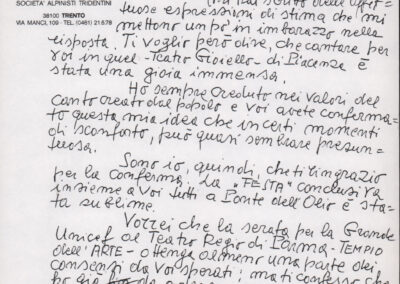 SOCIETA' ALPINISTI TRIDENTINI
38100 TRENTO
VIA MANCI, 109 - TEL. (0461) 21.5.78
tuose espressioni di stima che mi
mettono un po' in imbarazzo nella
risposta. Ti voglio però dire, che cantare per
voi in quel - Teatro Gioiello - di Piacenza è
stata una gioia immensa.
Ho sempre creduto nei valori del
canto creato dal popolo e voi avete conferma-
to questa mia idea che in certi momenti
di sconforto, può quasi sembrare presun-
tuosa.
Sono io, quindi, che ti ringrazio
per la conferma. La "FESTA" conclusiva
insieme a voi tutti a Ponte dell'Olio è sta-
ta sublime.
Vorrei che la serata per la Grande
Unicef al Teatro Regio di Parma - TEMPIO
dell'ARTE - ottenga almeno una parte dei
consensi da voi sperati: ma ti confesso che